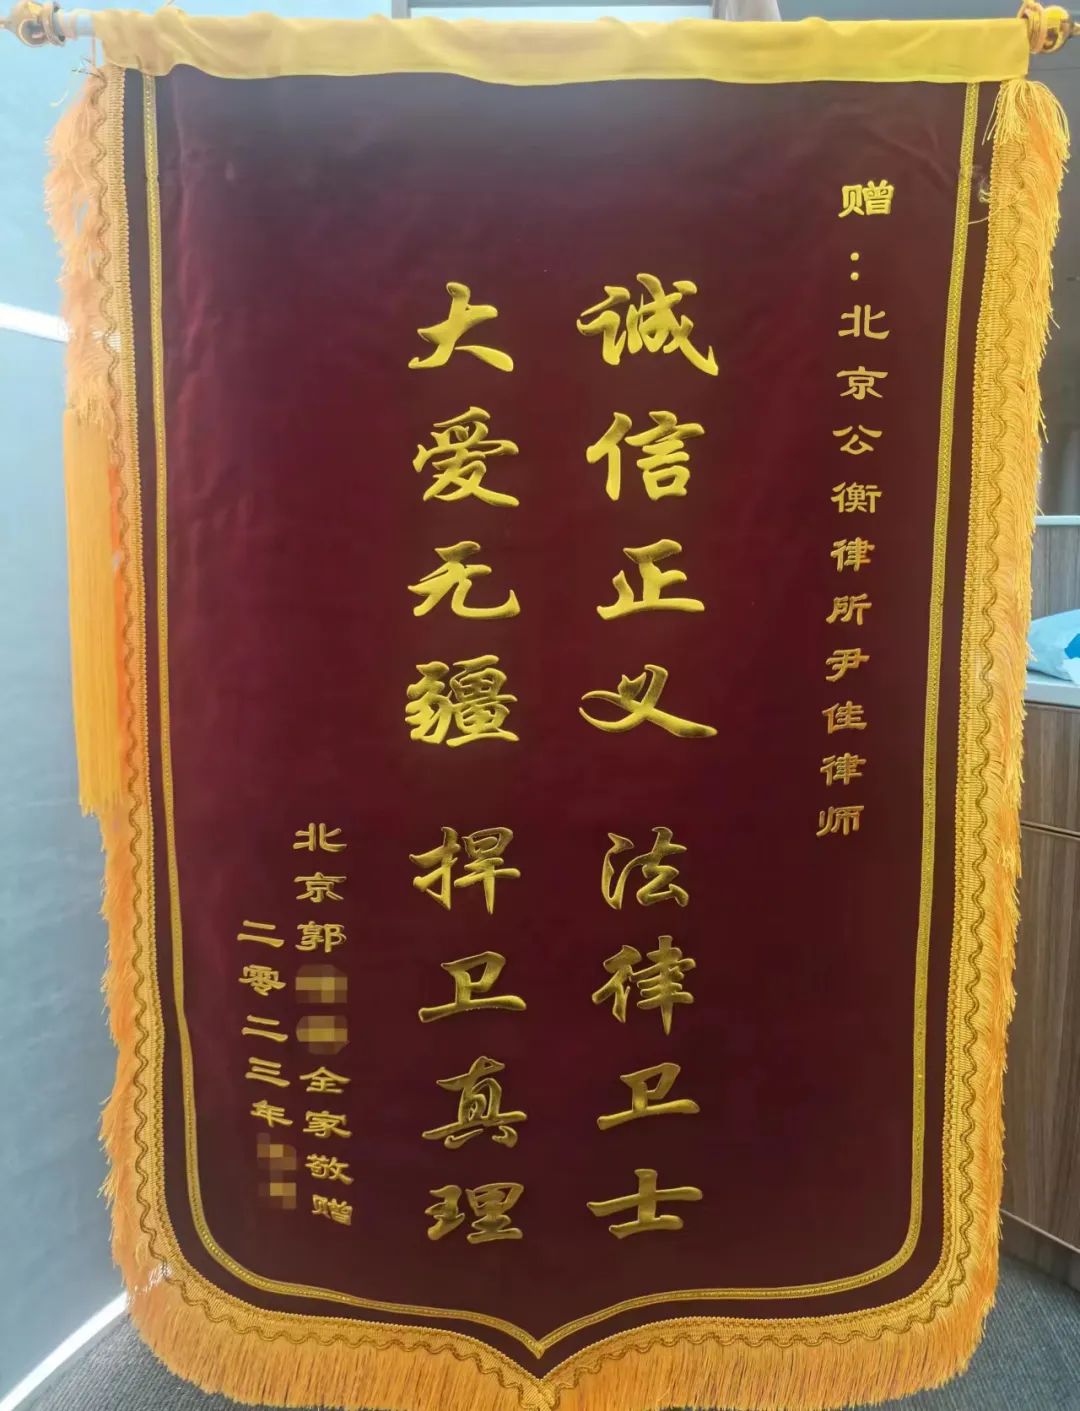 赠：北京公衡律所尹佳律师
诚信正义 法律卫士
大爱无疆 捍卫真理
北京郭全家敬赠
二零二三年